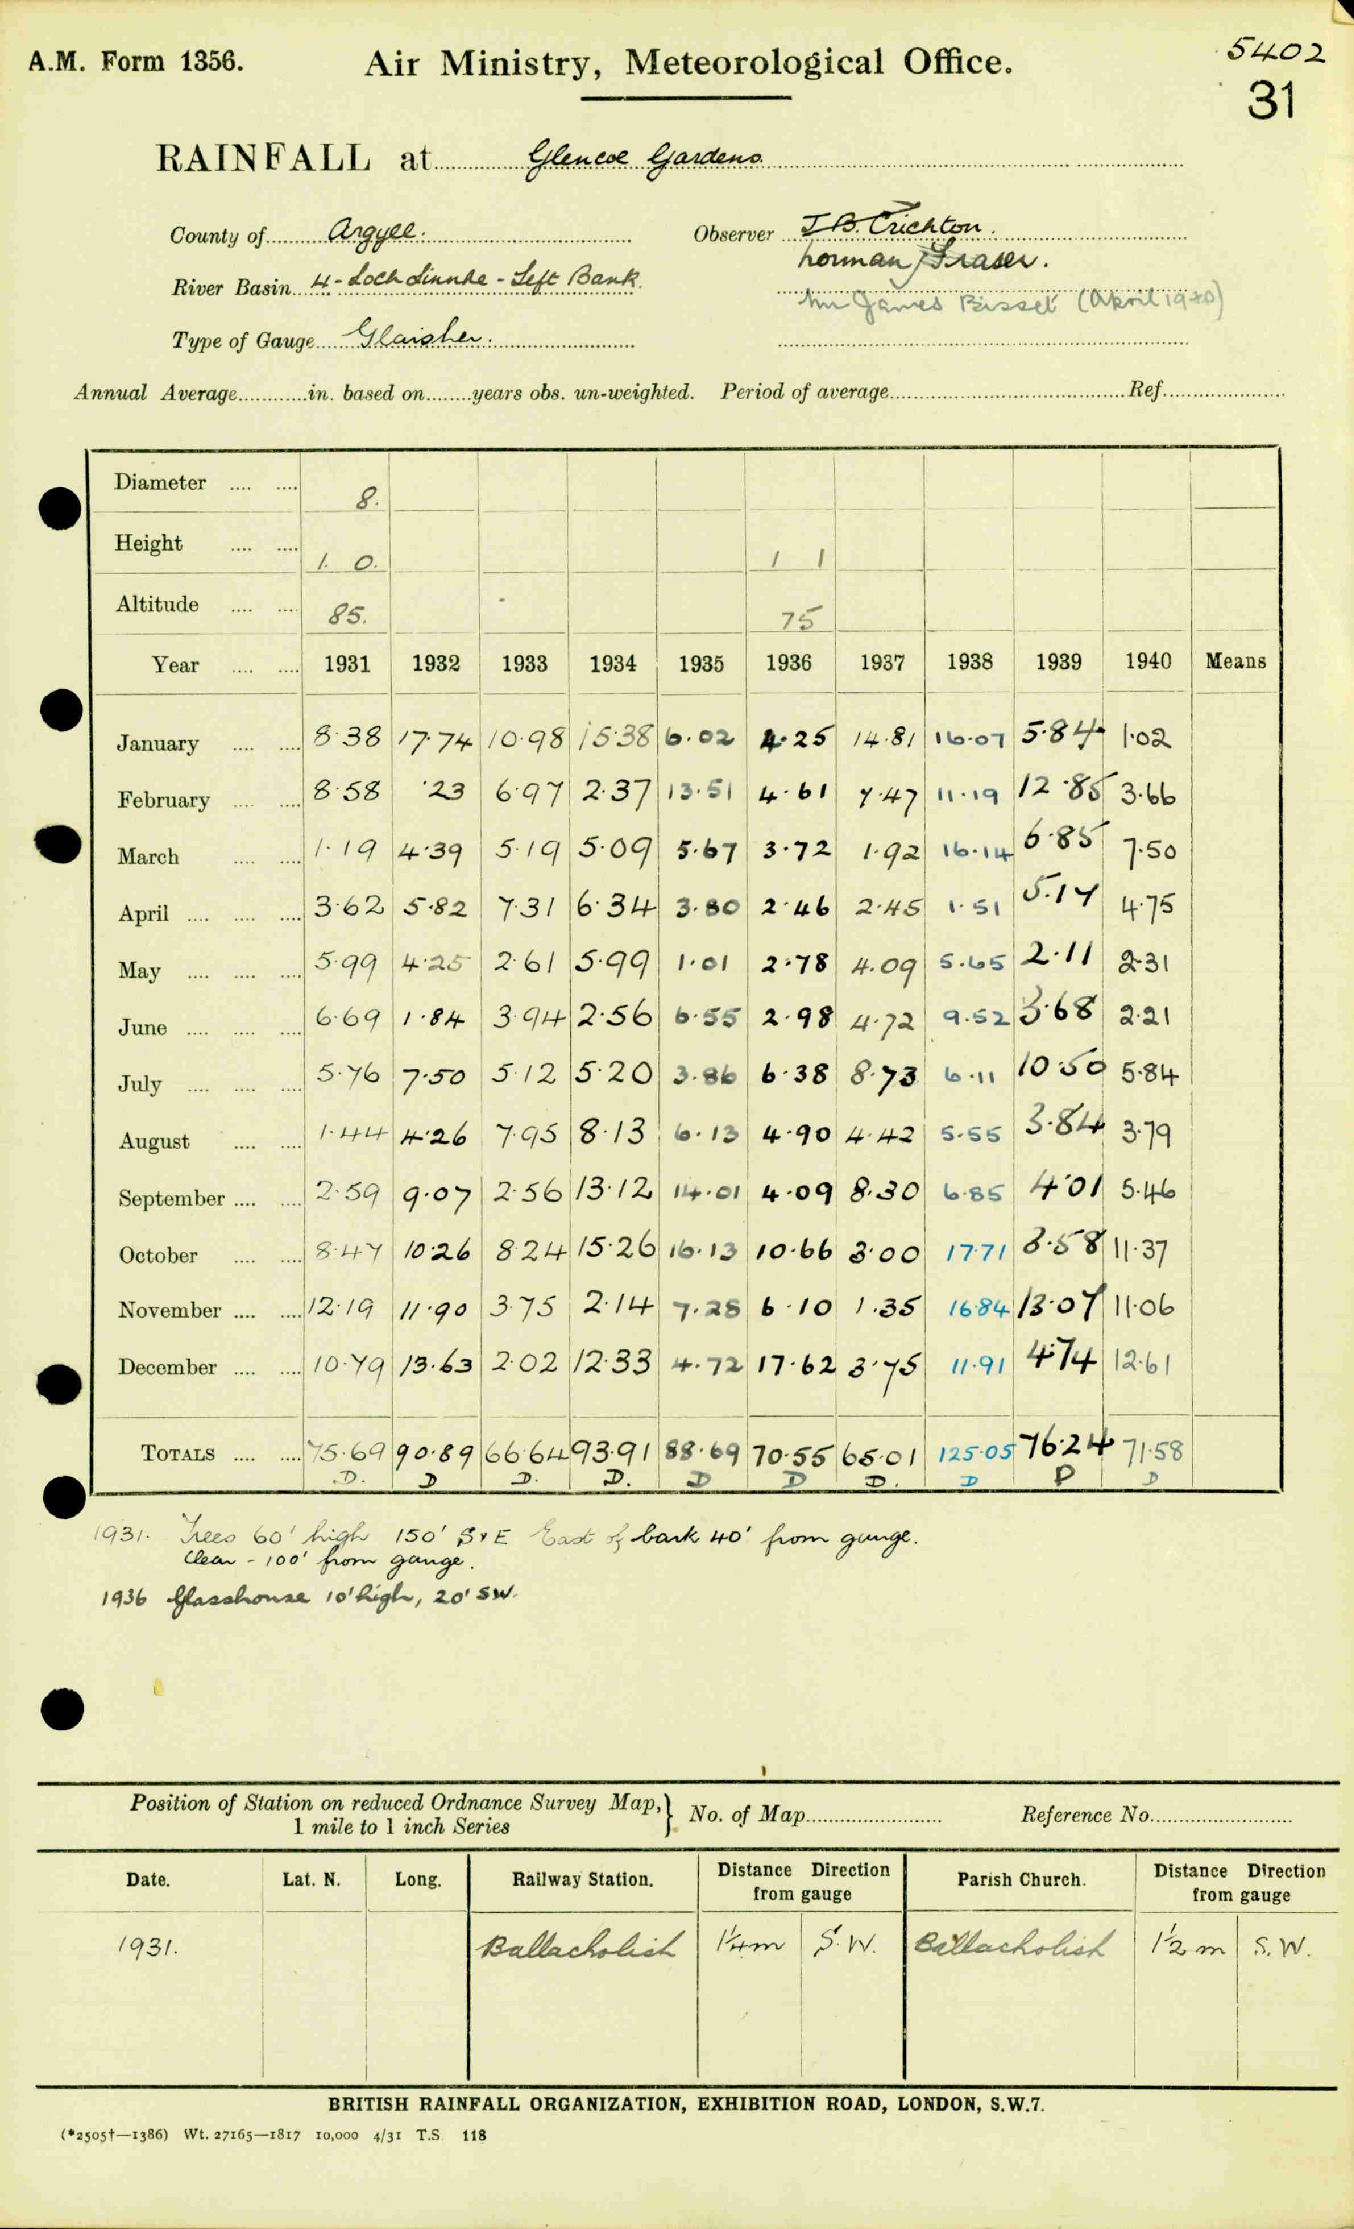 A.M. Form 1356.
Air Ministry, Meteorological Office.
5402
31
RAINFALL at Glencoe Gardens
County of Argyll.
Observer J.B. Crichton.
Norman Fraser.
River Basin 4 - Loch Linnhe - Left Bank
Mr James Bisset (April 1940)
Type of Gauge Glaisher.
Annual Average............in. based on........years obs. un-weighted. Period of average............ Ref............
Diameter 8.
Height 1. 0. 1 1
Altitude 85. 75
Year 1931 1932 1933 1934 1935 1936 1937 1938 1939 1940 Means
January 8.38 17.74 10.98 15.38 6.02 4.25 14.81 16.07 5.84 1.02
February 8.58 .23 6.97 2.37 13.51 4.61 7.47 11.19 12.85 3.66
March 1.19 4.39 5.19 5.09 5.67 3.72 1.92 16.14 6.85 7.50
April 3.62 5.82 7.31 6.34 3.80 2.46 2.45 1.51 5.17 4.75
May 5.99 4.25 2.61 5.99 1.01 2.78 4.09 5.65 2.11 2.31
June 6.69 1.84 3.94 2.56 6.55 2.98 4.72 9.52 3.68 2.21
July 5.76 7.50 5.12 5.20 3.86 6.38 8.73 6.11 10.50 5.84
August 1.44 4.26 7.95 8.13 6.13 4.90 4.42 5.55 3.84 3.79
September 2.59 9.07 2.56 13.12 14.01 4.09 8.30 6.85 4.01 5.46
October 8.47 10.26 8.24 15.26 16.13 10.66 3.00 17.71 3.58 11.37
November 12.19 11.90 3.75 2.14 7.28 6.10 1.35 16.84 13.07 11.06
December 10.79 13.63 2.02 12.33 4.72 17.62 3.75 11.91 4.74 12.61
TOTALS 75.69 90.89 66.64 93.91 88.69 70.55 65.01 125.05 76.24 71.58
D. D D. D. D D D. D D D
1931. Trees 60' high 150' S & E East of bark 40' from gauge.
Clear - 100' from gauge.
1936 Glasshouse 10' high, 20' SW.
Position of Station on reduced Ordnance Survey Map,
1 mile to 1 inch Series
No. of Map............ Reference No............
Date. Lat. N. Long. Railway Station. Distance Direction from gauge Parish Church. Distance Direction from gauge
1931. Ballacholish 1¼ m S.W. Ballacholish 1½ m S.W.
BRITISH RAINFALL ORGANIZATION, EXHIBITION ROAD, LONDON, S.W.7.
(*2505†—1386) Wt. 27165—1817 10,000 4/31 T.S. 118